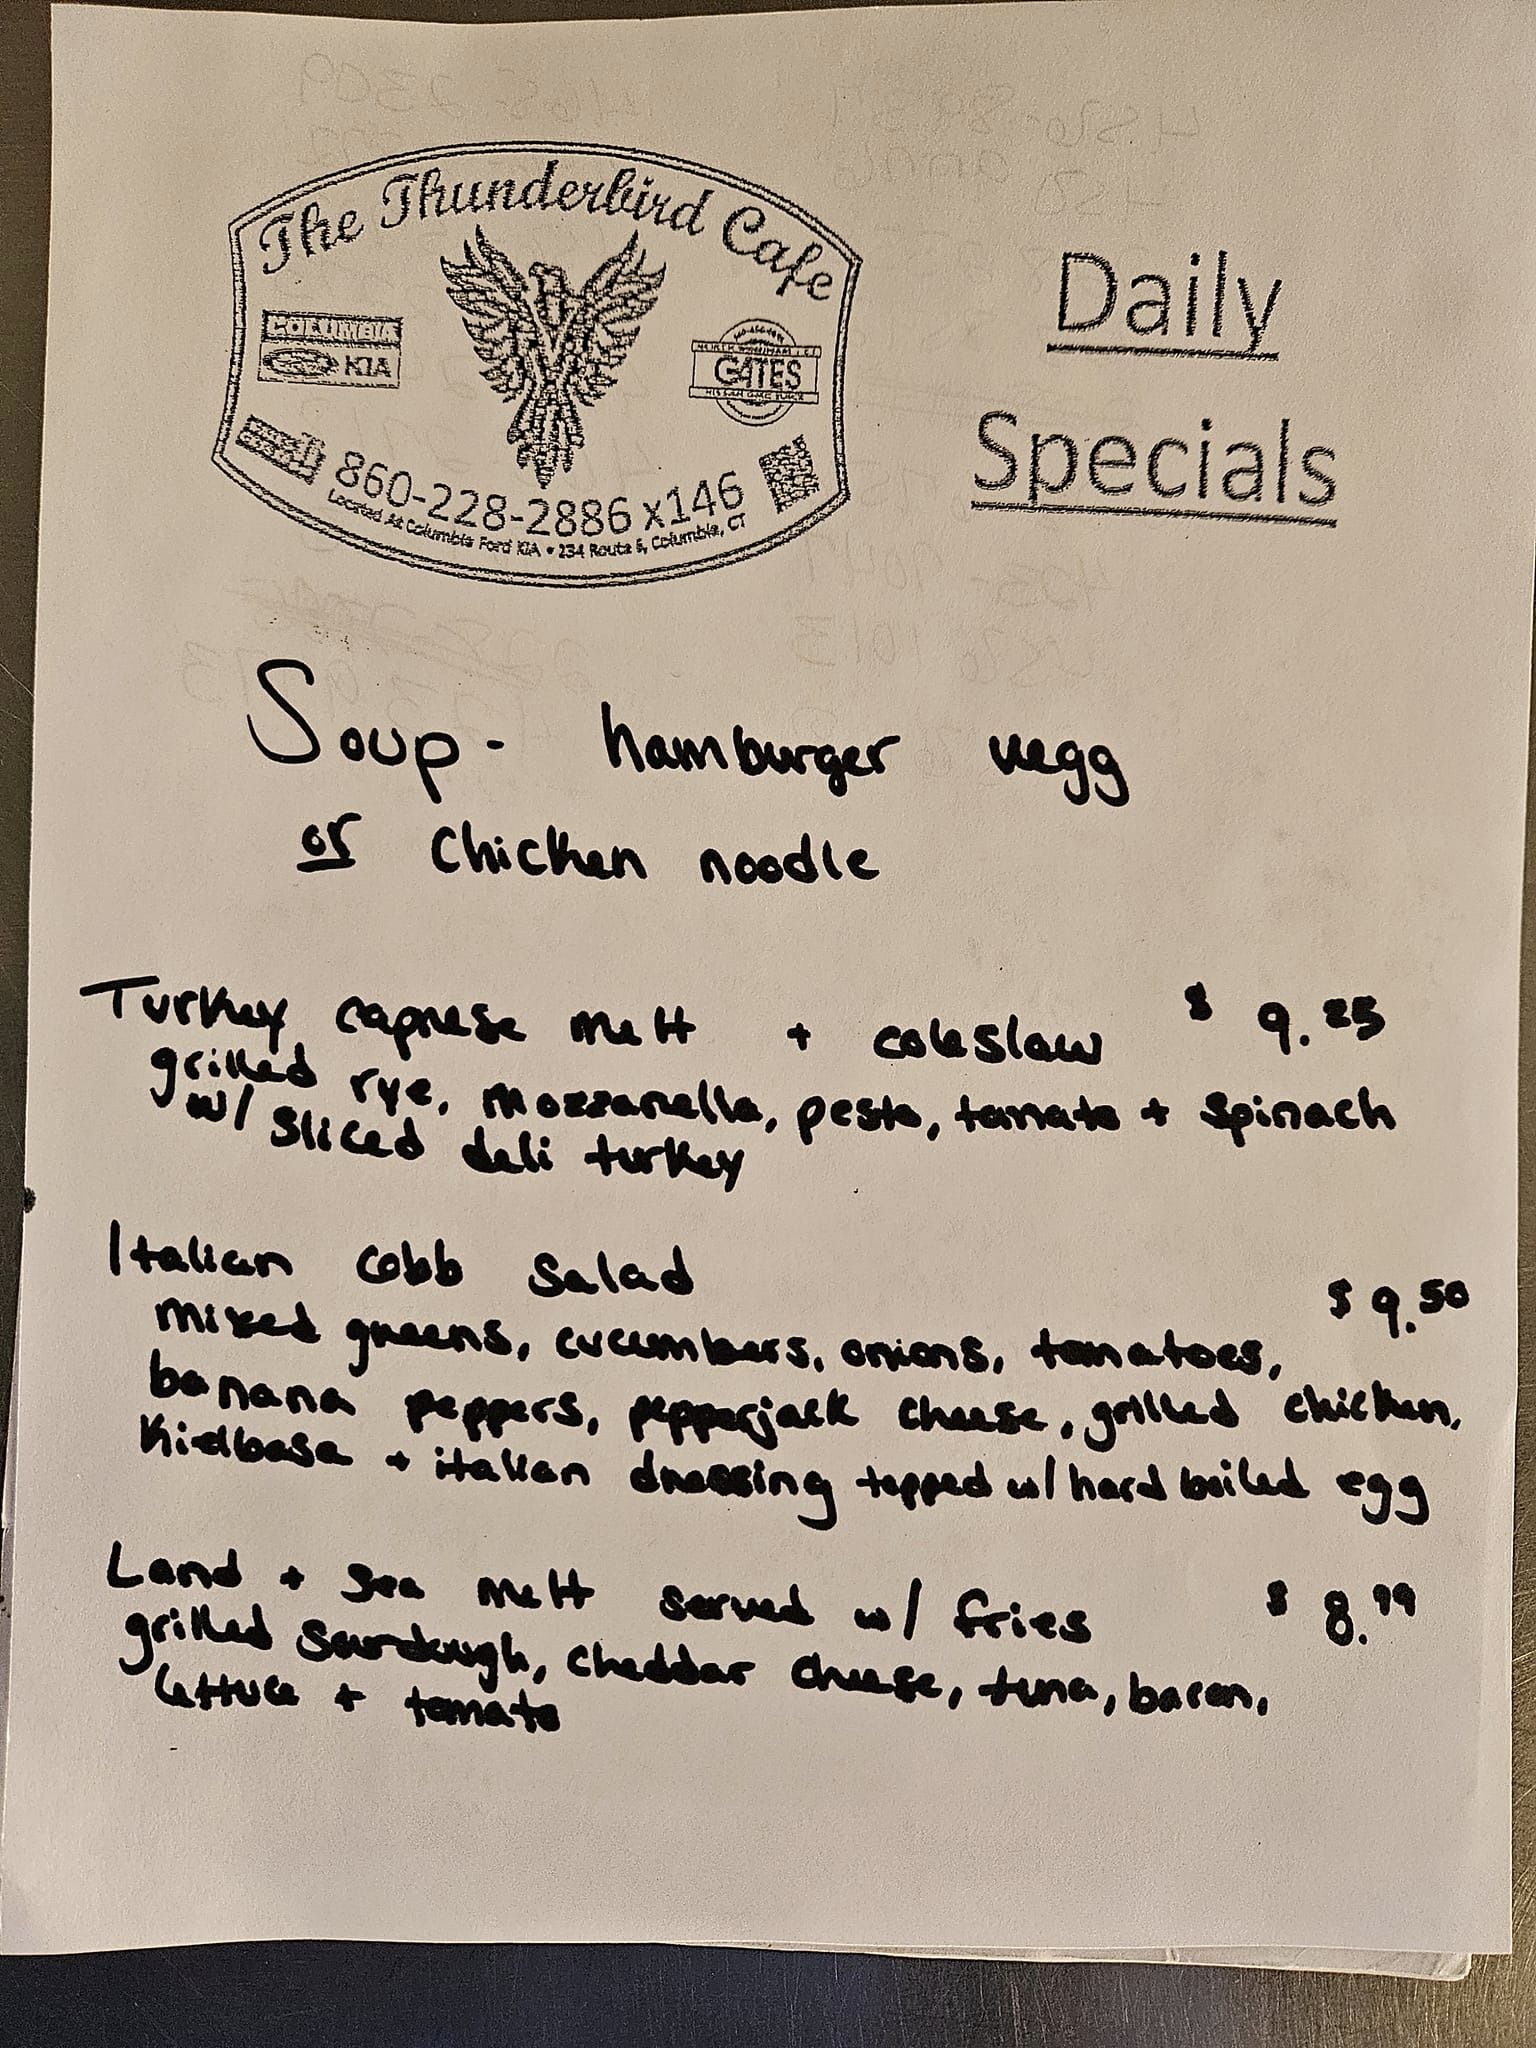 The Thunderbird Cafe
COLUMBIA
KIA
GATES
860-228-2886 x146
Located At Columbia Ford KIA • 234 Route 6, Columbia, CT
Daily
Specials
Soup - hamburger vegg
or chicken noodle
Turkey caprese melt + coleslaw $ 9.25
grilled rye, mozzarella, pesto, tomato + spinach
w/ sliced deli turkey
Italian cobb salad
$ 9.50
mixed greens, cucumbers, onions, tomatoes,
banana peppers, pepperjack cheese, grilled chicken,
Kielbasa + italian dressing topped w/ hard boiled egg
Land + sea melt served w/ fries $ 8.99
grilled sourdough, cheddar cheese, tuna, bacon,
lettuce + tomato